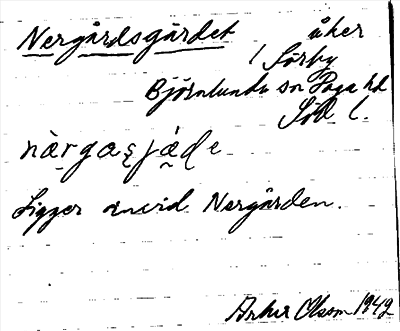 Nergårdsgärdet åker
/ Sörby
Björnlunda sn Daga hd
Söd l.
nàrgaşjǽḍe
Ligger invid Nergården.
Artur Olsson 1942